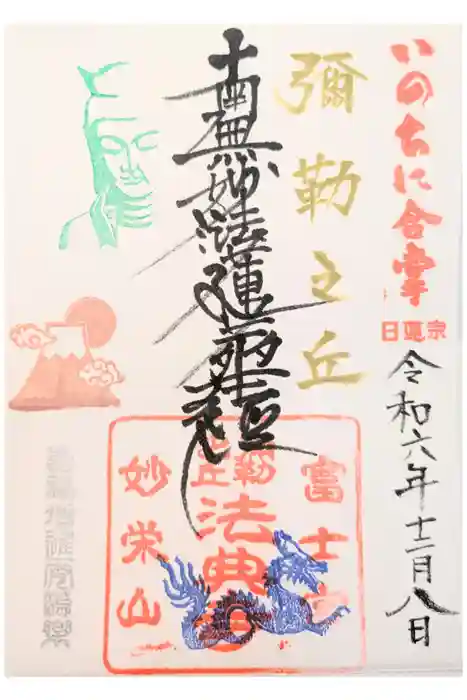 いのちに合掌
日蓮宗
令和六年十二月八日
彌勒之丘
南無妙法蓮華経
富士
法典
妙栄山